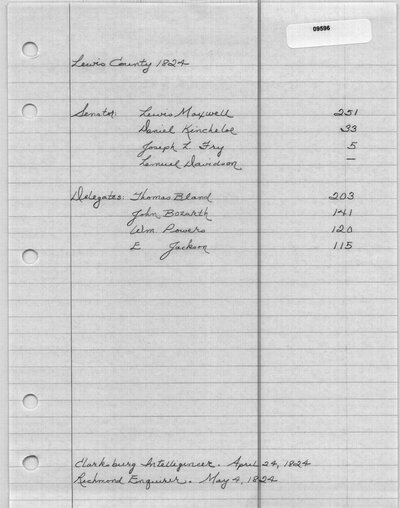 09596
Lewis County 1824
Senator: Lewis Maxwell 251
Daniel Kincheloe 33
Joseph L. Fry 5
Lemuel Davidson —
Delegates: Thomas Bland 203
John Bozarth 141
Wm. Powers 120
E Jackson 115
Clarksburg Intelligencer. April 24, 1824
Richmond Enquirer. May 4, 1824